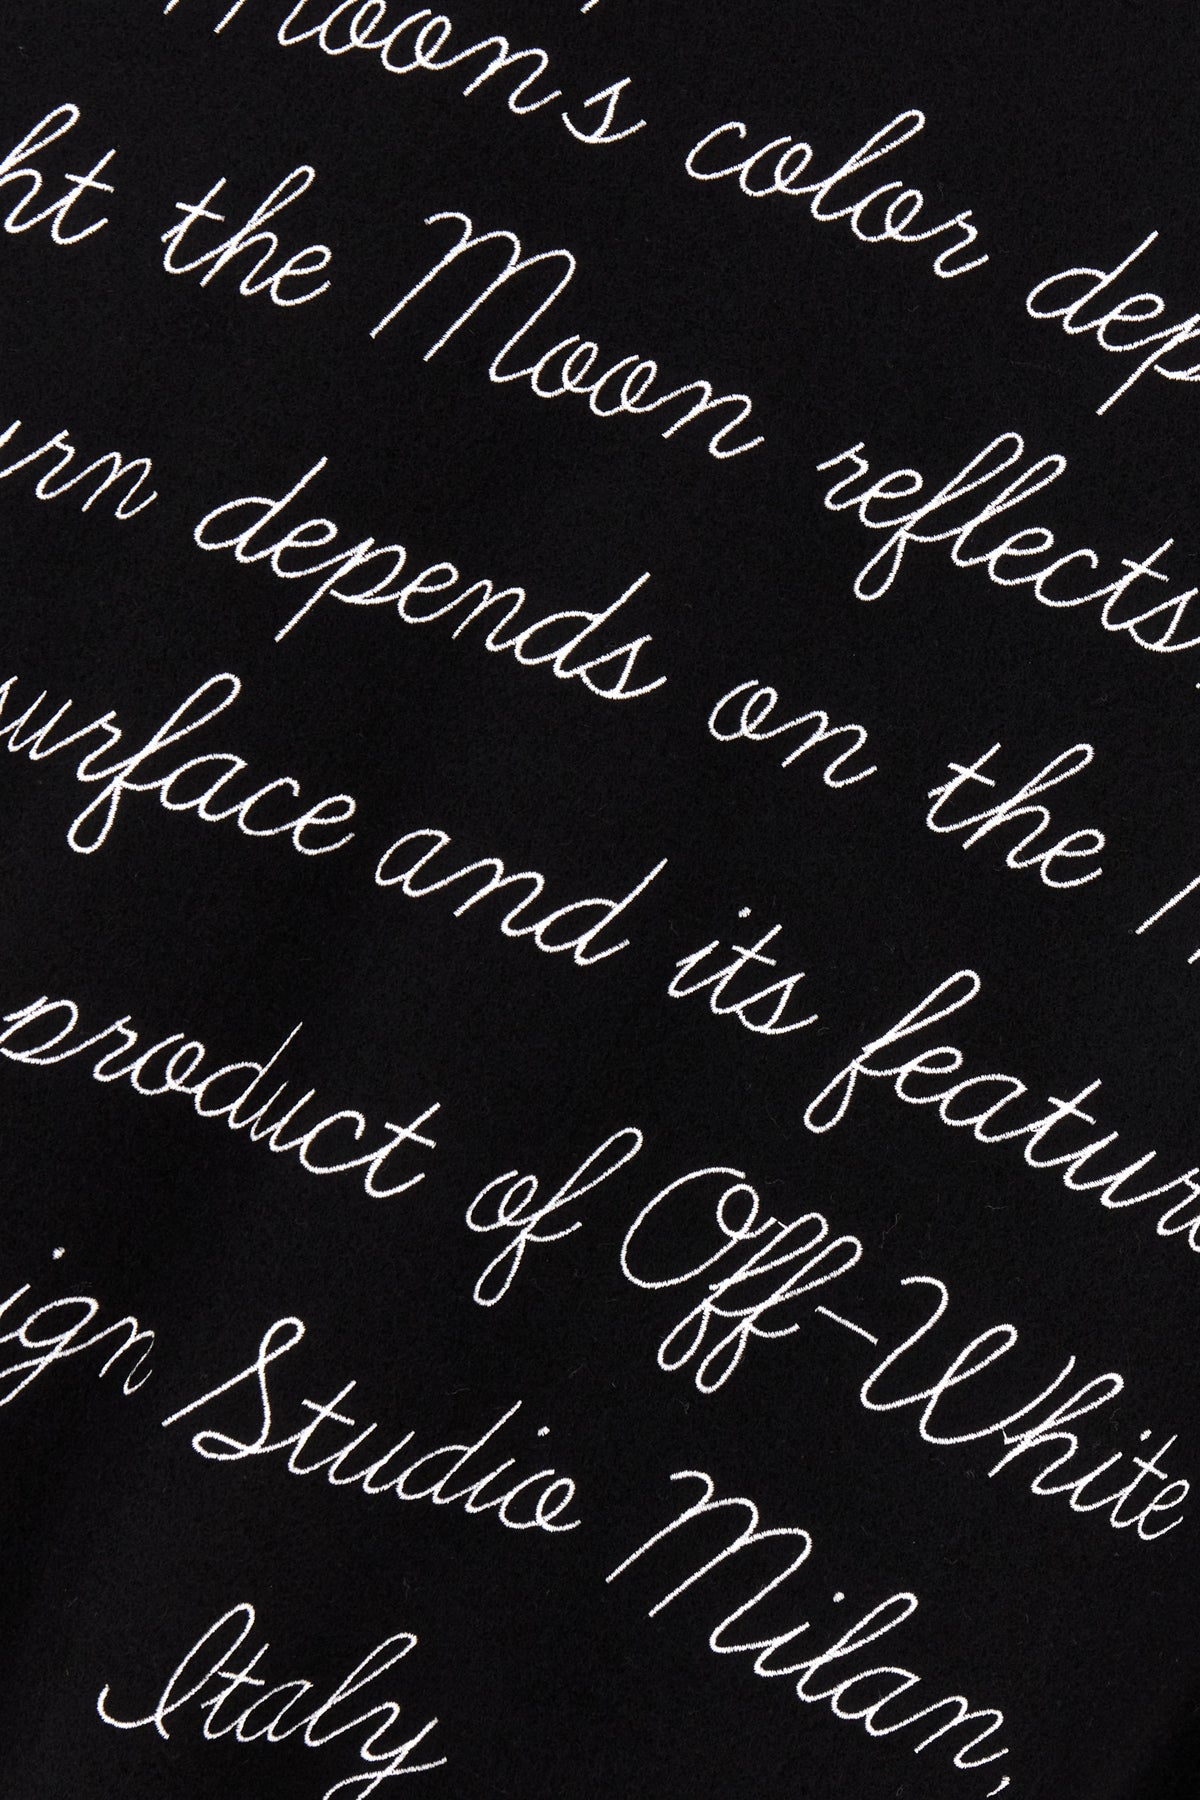 Moon's color dep
ht the Moon reflects.
urn depends on the
surface and its featur
product of Off-White
ign Studio Milan,
Italy